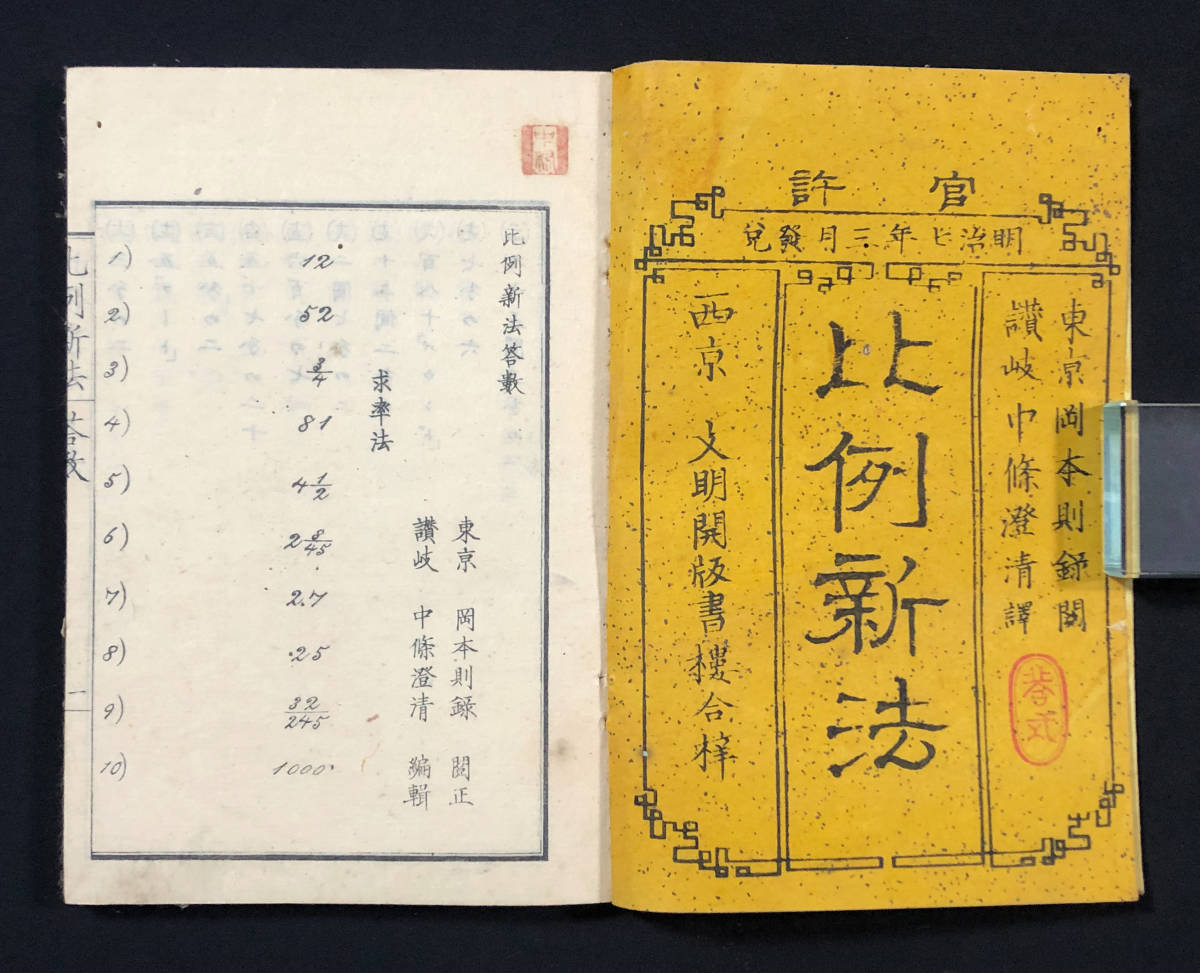 官許
明治七年三月發兌
東京岡本則錄閱
讃岐中條澄清譯
答式
比例新法
西京 文明開版書樓合梓
比例新法答數
東京 岡本則錄 閱正
讃岐 中條澄清 編輯
求率法
1) 12
2) 52
3) 3/4
4) 81
5) 4 1/2
6) 2 8/45
7) 2.7
8) .25
9) 32/245
10) 1000
比例新法 答數 一